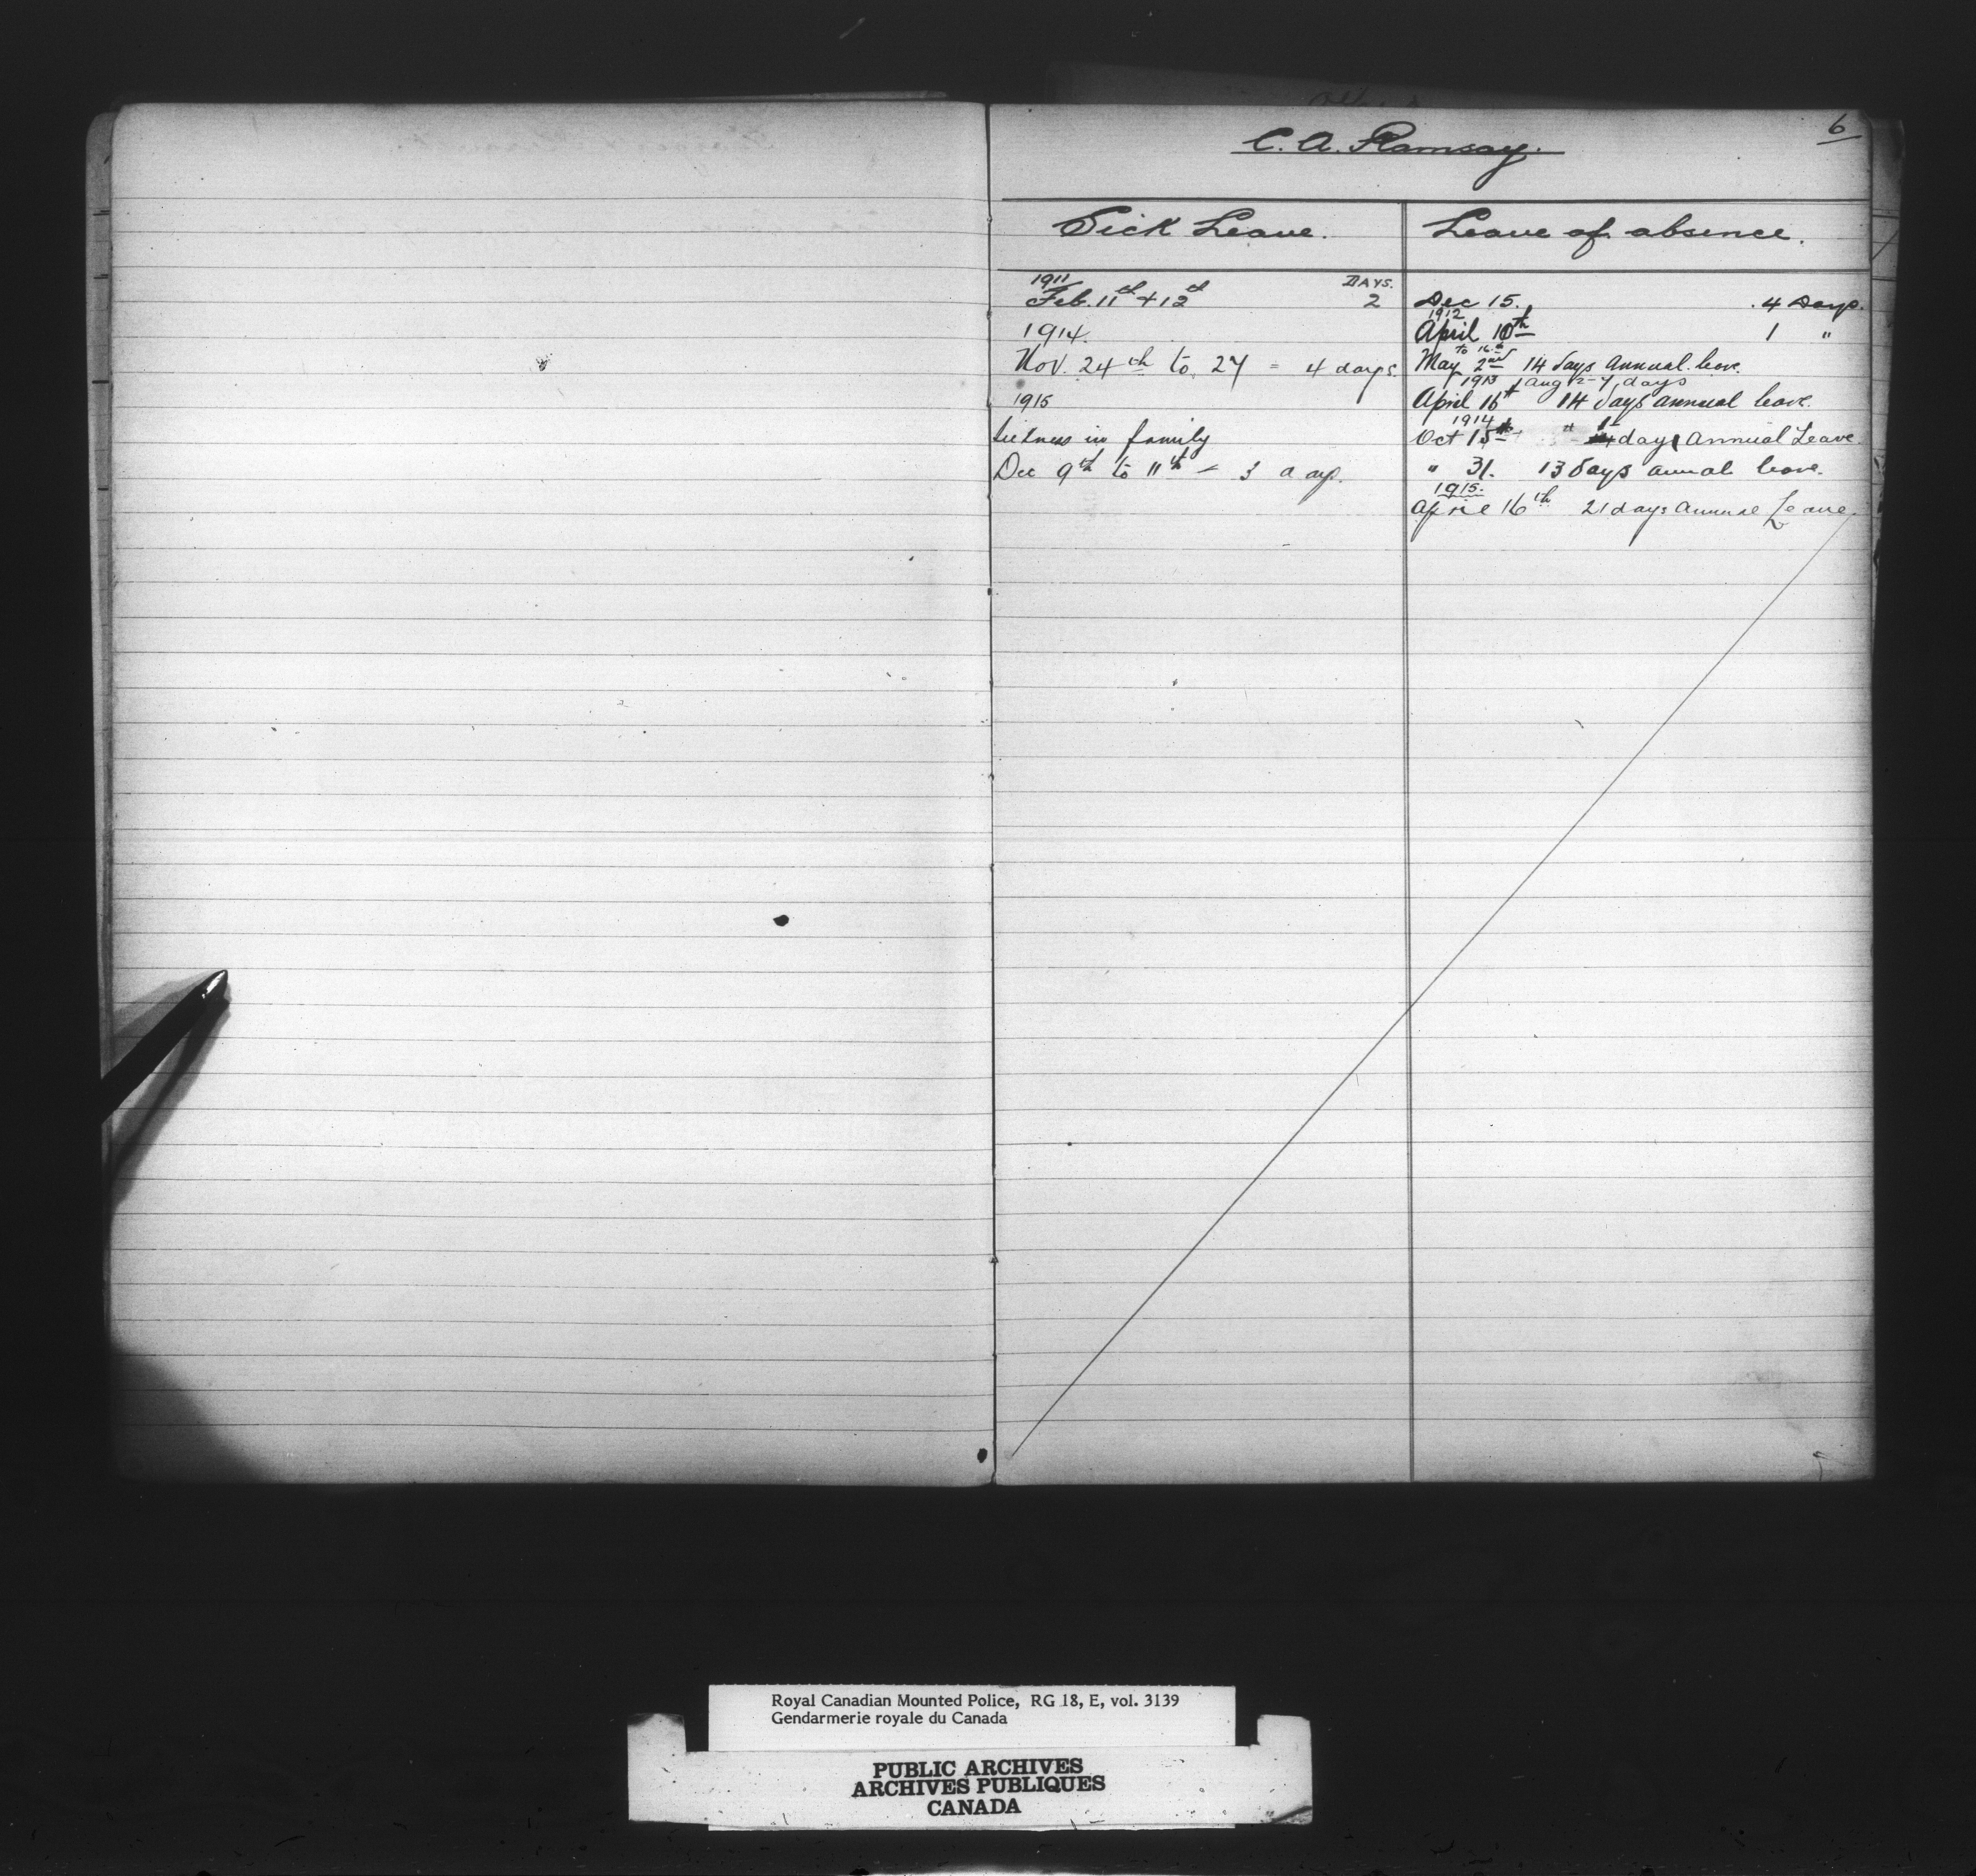 6
C. A. Ramsay.
Sick Leave.
1911 DAYS.
Feb. 11th + 12th 2
1914.
Nov. 24th to 27 = 4 days.
1915
Sickness in family
Dec 9th to 11th - 3 days.
Leave of absence.
Dec 15. 4 Days.
1912
April 10th 1 "
to 16th
May 2nd 14 days annual leave.
1913 Aug 12 - 7 days
April 16th 14 days annual leave.
1914
Oct 15th 1 day Annual Leave.
" 31. 13 days annual leave.
1915.
April 16th 21 days Annual Leave.
Royal Canadian Mounted Police, RG 18, E, vol. 3139
Gendarmerie royale du Canada
PUBLIC ARCHIVES
ARCHIVES PUBLIQUES
CANADA